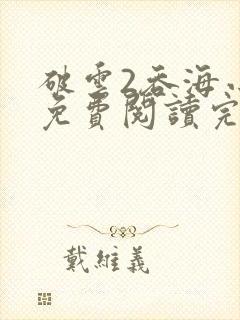 破雲2吞海
免費閱讀完
戴維義